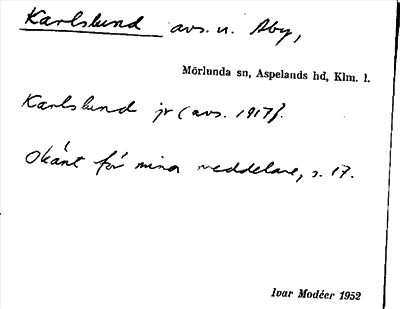 Karlslund avs. u. Åby,
Mörlunda sn, Aspelands hd, Klm. l.
Karlslund jr (avs. 1917).
Okänt för mina meddelare, s. 17.
Ivar Modéer 1952